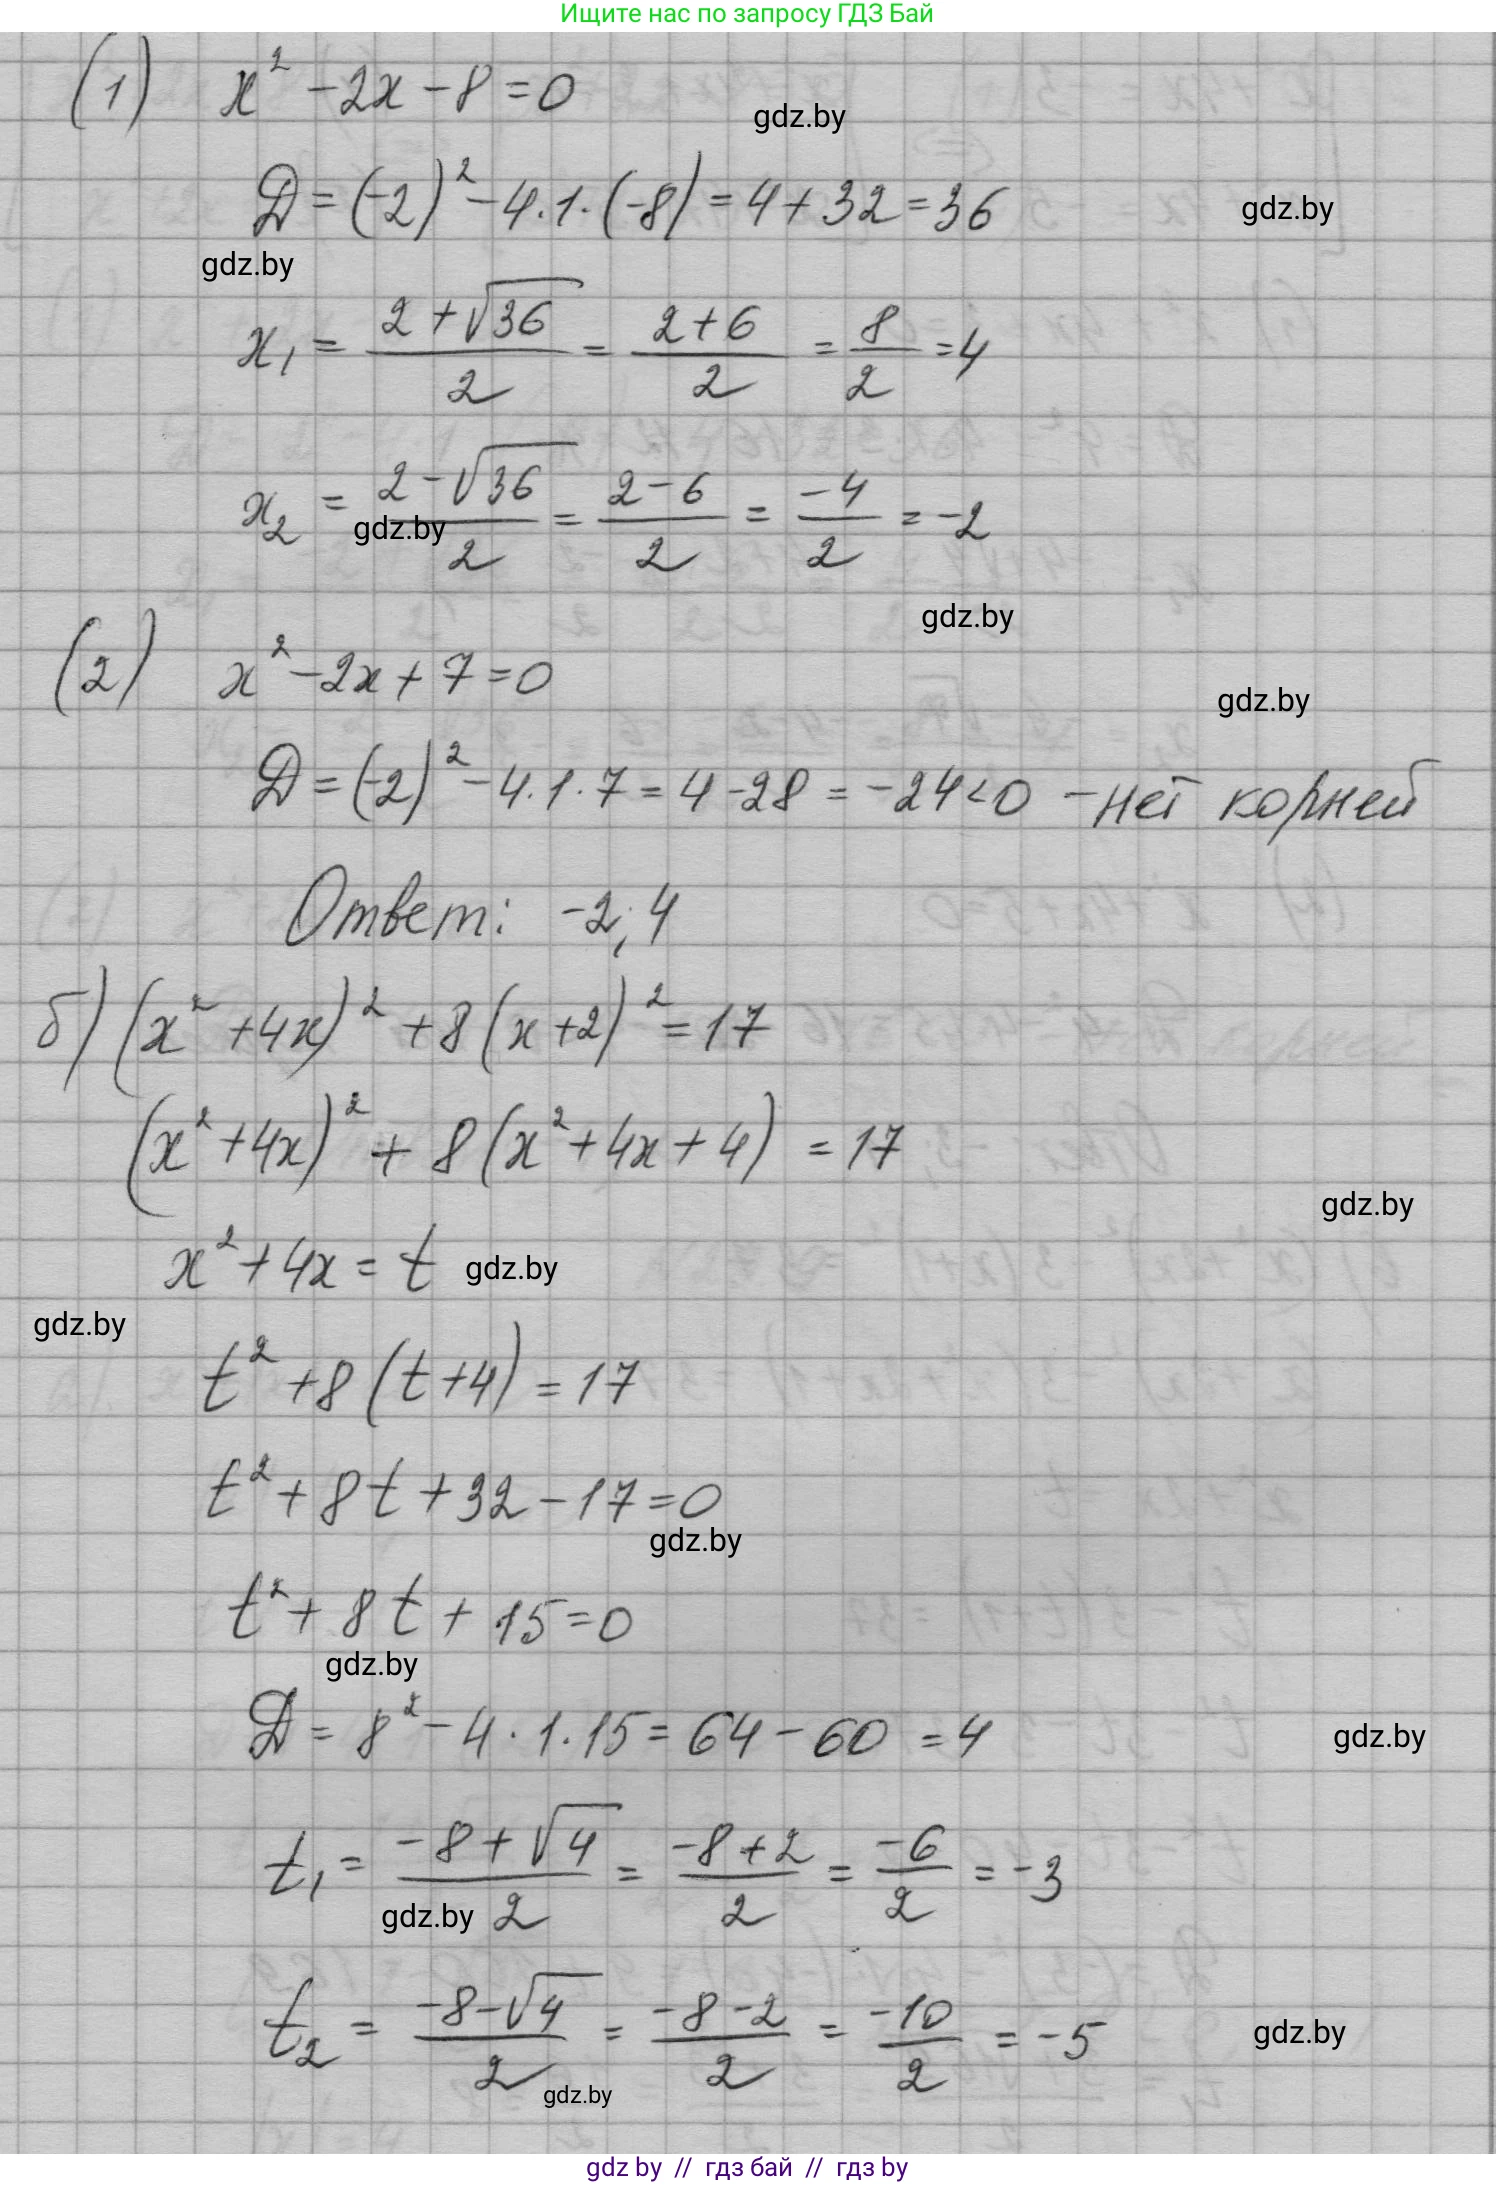 Ищите нас по запросу ГДЗ Бай
(1) x² - 2x - 8 = 0
gdz.by
D = (-2)² - 4·1·(-8) = 4 + 32 = 36
gdz.by
gdz.by
x₁ = (2 + √36)/2 = (2 + 6)/2 = 8/2 = 4
x₂ = (2 - √36)/2 = (2 - 6)/2 = -4/2 = -2
gdz.by
gdz.by
(2) x² - 2x + 7 = 0
gdz.by
D = (-2)² - 4·1·7 = 4 - 28 = -24 < 0 - нет корней
Ответ: -2; 4
б) (x² + 4x)² + 8(x + 2)² = 17
(x² + 4x)² + 8(x² + 4x + 4) = 17
gdz.by
x² + 4x = t
gdz.by
gdz.by
t² + 8(t + 4) = 17
t² + 8t + 32 - 17 = 0
gdz.by
t² + 8t + 15 = 0
gdz.by
D = 8² - 4·1·15 = 64 - 60 = 4
gdz.by
t₁ = (-8 + √4)/2 = (-8 + 2)/2 = -6/2 = -3
gdz.by
t₂ = (-8 - √4)/2 = (-8 - 2)/2 = -10/2 = -5
gdz.by
gdz.by
gdz by // гдз бай // гдз by